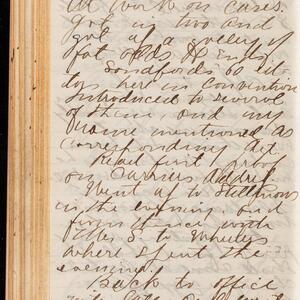 at work on cases.
Got in two and
got up a galley of
fat odds & Ends
Sandfords 60 Edi-
tors here in Convention
Introduced to several
of them, and my
name mentioned as
corresponding Sec.
Read first proof
on Carriers Address.
Went up to Stillmans
in the evening, and
from thence with
Ettie S. to Wheelers
where spent the
evening.
Back to office
with